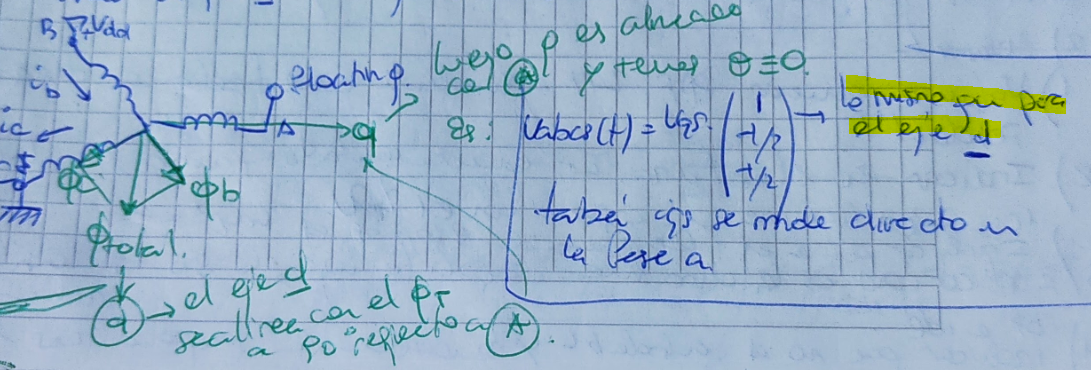 B +Vdd
ib
floating.
ic
A
q
ϕc
ϕb
ϕtotal.
d → el eje d
se alinea con el ϕT
a 90° respecto a A.
Luego q es alineado
con A y tenes θ≡0.
Es: Vabcs(t) = Vqs. (1 -1/2 -1/2) → lo mismo que para
el eje d
també iqs se mide directo en
la fase a